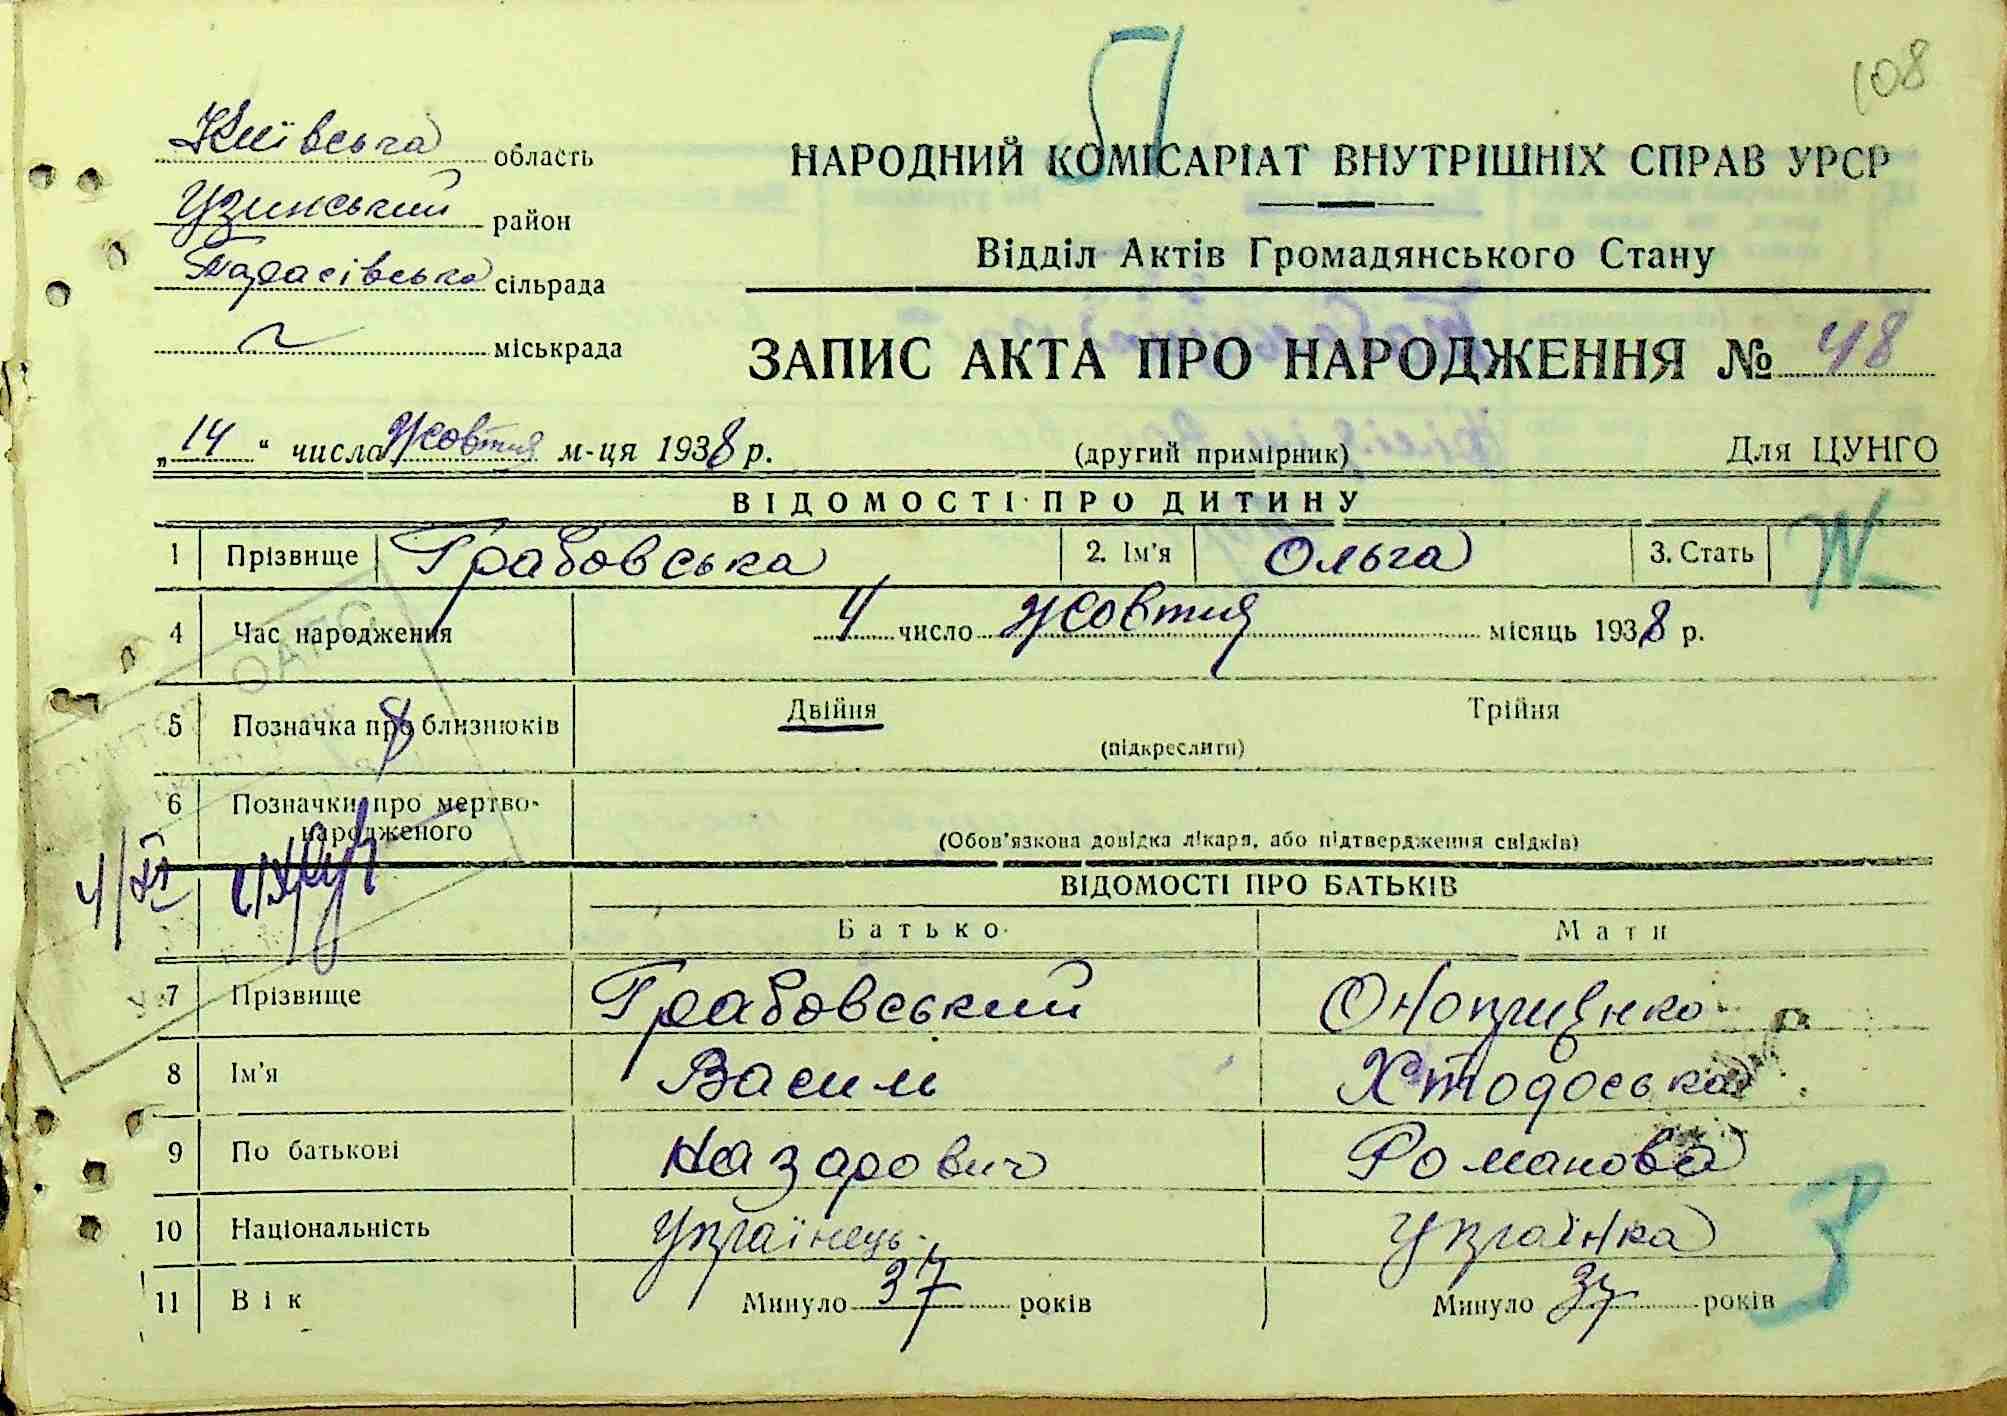 108
51
Київська область
Узинський район
Тарасівська сільрада
міськрада
НАРОДНИЙ КОМІСАРІАТ ВНУТРІШНІХ СПРАВ УРСР
Відділ Актів Громадянського Стану
ЗАПИС АКТА ПРО НАРОДЖЕННЯ № 48
„14“ числа Жовтня м-ця 1938 р.
(другий примірник)
Для ЦУНГО
ВІДОМОСТІ ПРО ДИТИНУ
1 Прізвище Грабовська 2. Ім'я Ольга 3. Стать
4 Час народження 4 число Жовтня місяць 1938 р.
5 Позначка про близнюків Двійня Трійня
(підкреслити)
6 Позначки про мертво-
народженого
(Обов'язкова довідка лікаря, або підтвердження свідків)
ВІДОМОСТІ ПРО БАТЬКІВ
Батько Мати
7 Прізвище Грабовський Оноприенко
8 Ім'я Василь Хтодоська
9 По батькові Назарович Романова
10 Національність Українець Українка
11 Вік Минуло 37 років Минуло 37 років